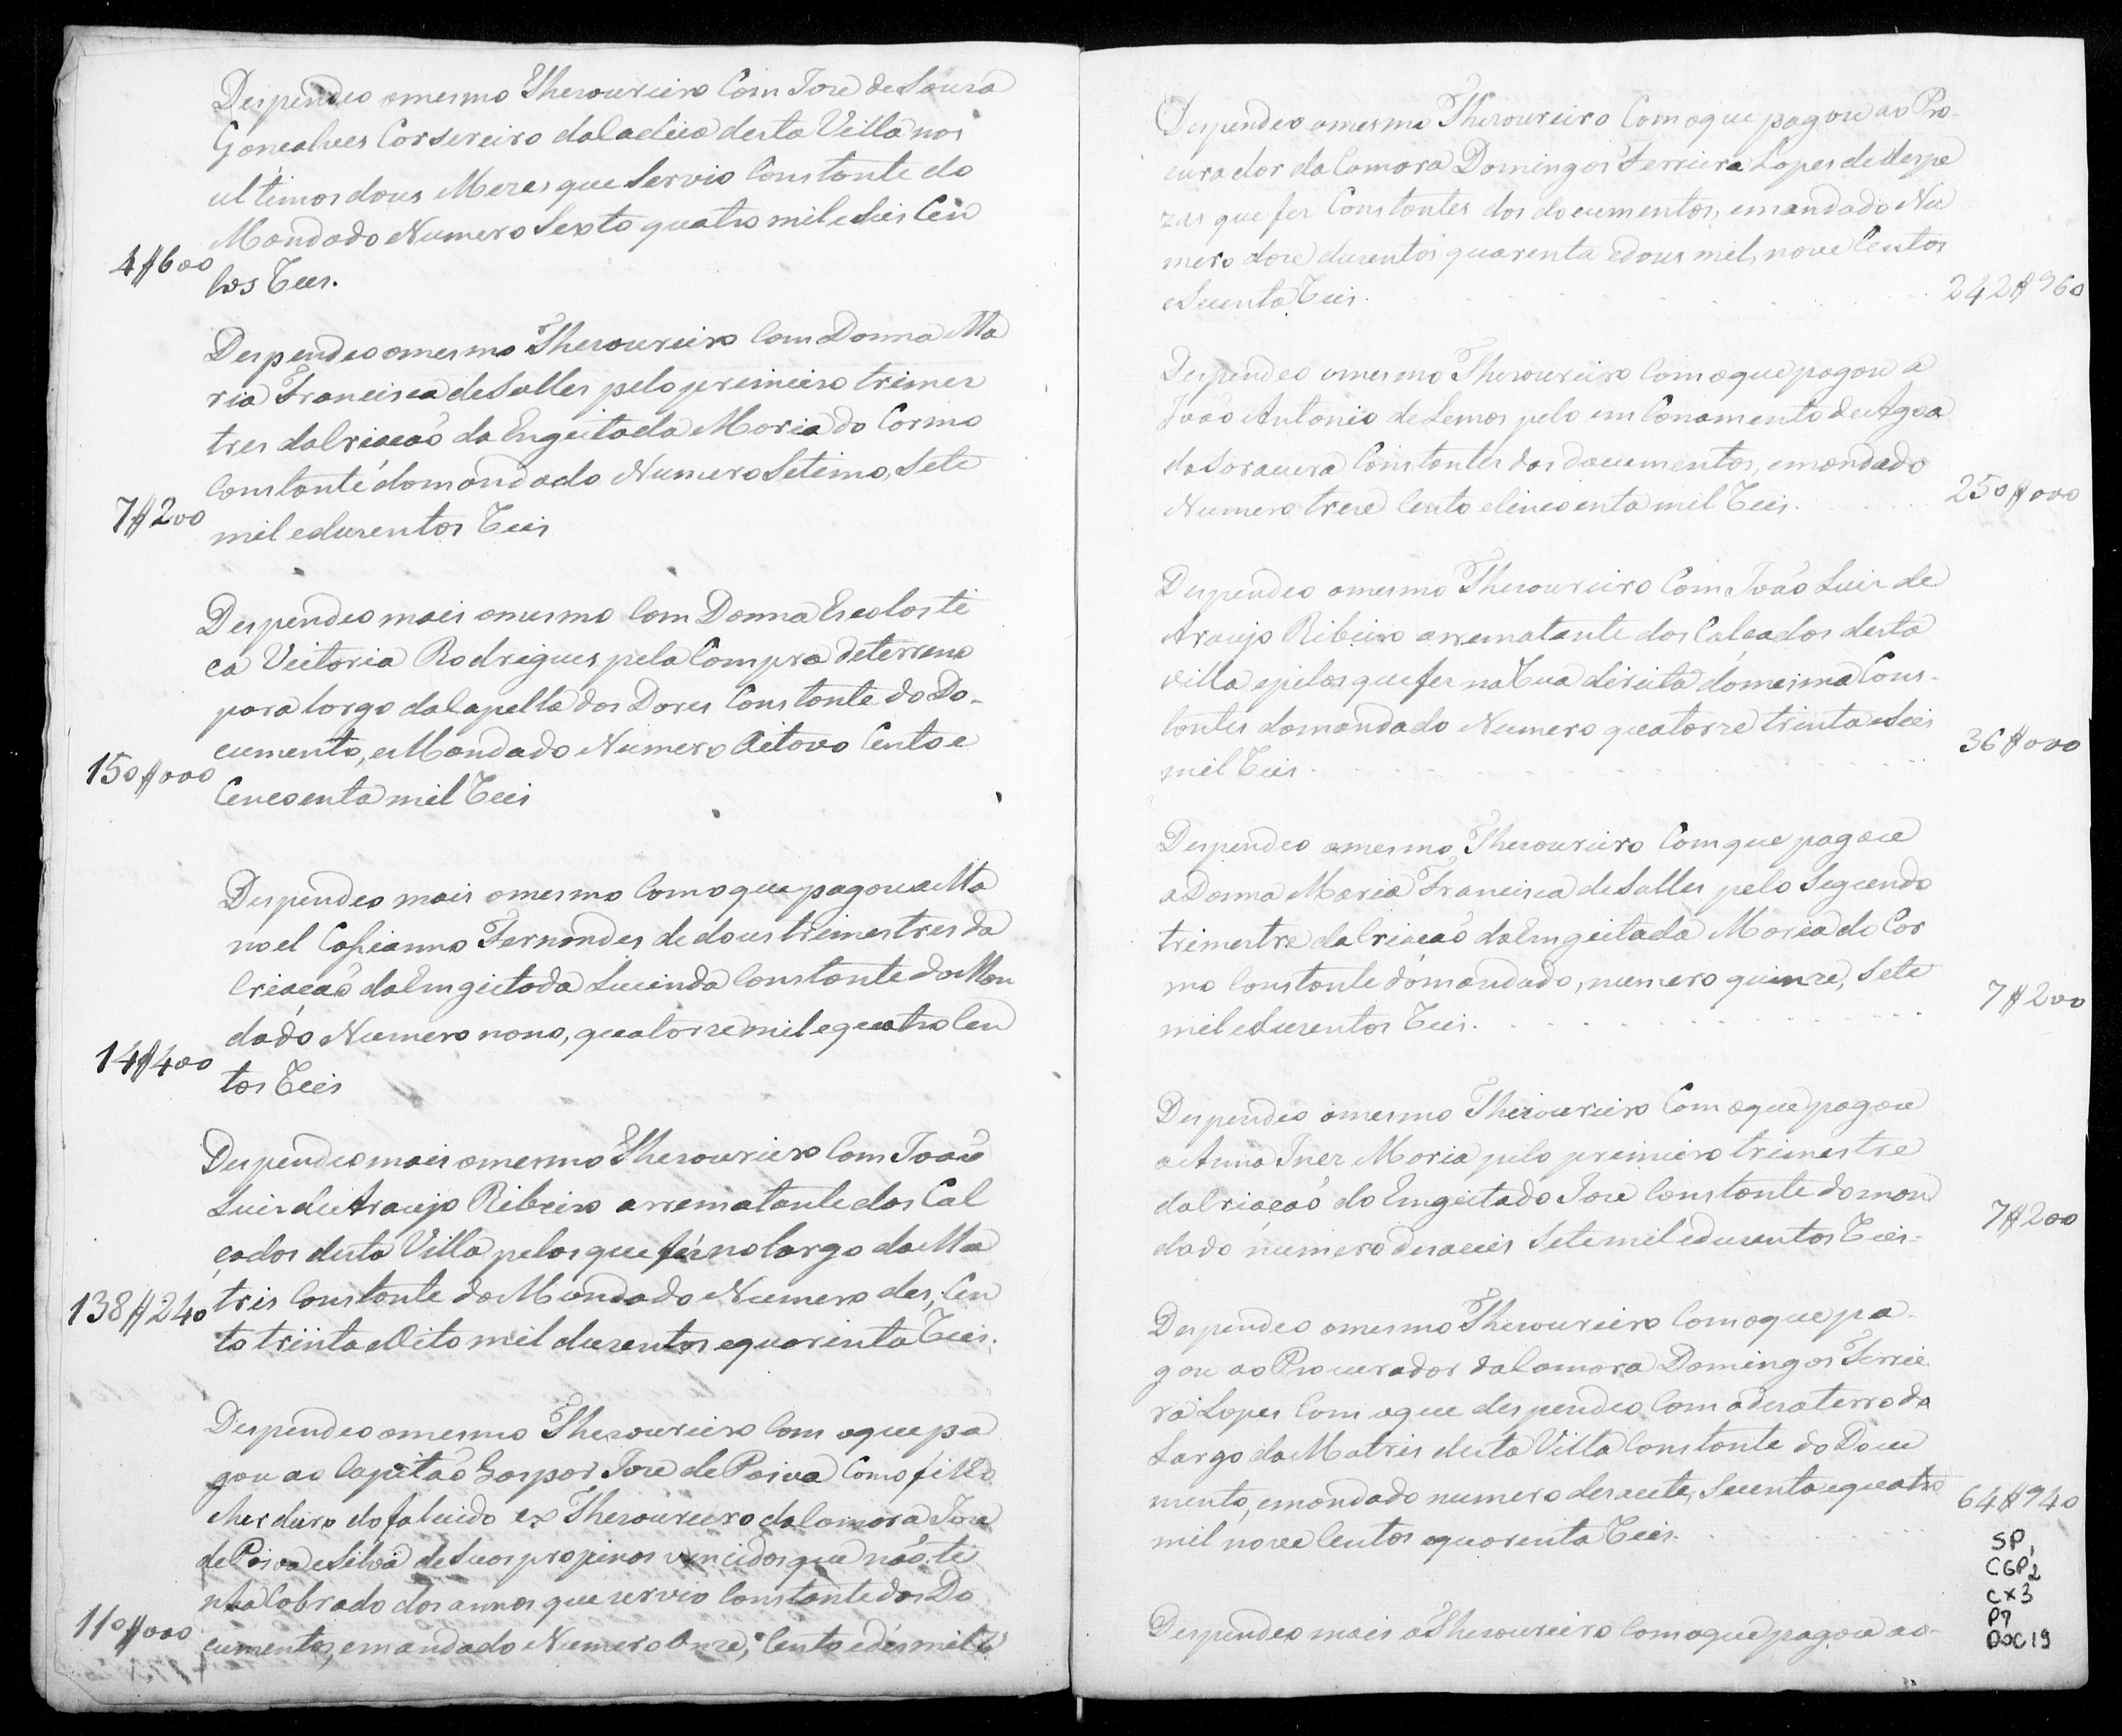 Despendeo omesmo Thesoureiro Com Joze de Souza
Goncalves Corsereiro daCadeia desta Villa nos
ultimos dous Mezes que Servio Constante do
Mandado Numero Sexto quatro mil e Seis Cen
4$600
tos Reis.
Despendeo omesmo Thesoureiro Com Donna Ma
ria Francisca de Salles pelo primeiro trimes
tres daCriacaõ da Engeitada Maria do Carmo
Constante domandado Numero Setimo, Sete
7$200
mil eduzentos Reis
Despendeo mais omesmo Com Donna Escolasti
ca Victoria Rodrigues pela Compra deterreno
para largo daCapella das Dores Constante do Do-
cumento, eMandado Numero Oitavo Cento e
150$000
Cincoenta mil Reis
Despendeo mais omesmo Comoque pagou a Ma
noel Fernandes de dous trimestres da
Criacaõ daEngeitada Lucinda Constante do Man
dado Numero nono, quatorze mil e quatro Cen
14$400
tos Reis
Despendeo mais omesmo Thesoureiro Com Joaõ
Luis de Araujo Ribeiro arrematante das Cal
çadas desta Villa pelas que fés no largo da Ma
138$240
tris Constante do Mandado Numero des, Cen
to trinta e Oito mil duzentos equarenta Reis.
Despendeo omesmo Thesoureiro Com oque pa
gou ao Capitaõ Gaspar Joze de Paiva Como filho
eherdeiro do falecido ex Thesoureiro daCamara Joze
de Paiva e Silva de Suas propinas vencidas que naõ ti
nha Cobrado dos annos que servio Constante dos Do
110$000
cumentos, emandado Numero Onze, Cento edés mil r.s
Despendeo omesmo Thesoureiro Com oque pagou ao Pro-
curador da Camara Domingos Ferreira Lopes de despe
zas que fes Constantes dos documentos, emandado Nu
mero doze duzentos quarenta edous mil, nove Centos
eSecenta Reis.
242$960
Despendeo omesmo Thesoureiro Com oque pagou a
Joaõ Antonio de Lemos pelo em Canamento de Agoa
da Constantes dos documentos, emandado
Numero treze Cento eCincoenta mil Reis.
250$000
Despendeo omesmo Thesoureiro Com Joaõ Luis de
Araujo Ribeiro arrematante das Calçadas desta
villa epelas que fes na Rua direita damesma Cons-
tantes domandado Numero quatorze trinta eSeis
36$000
mil Reis.
Despendeo omesmo Thesoureiro Com que pagou
aDonna Maria Francisca de Salles pelo Segundo
trimestre daCriacaõ daEngeitada Maria do Car
mo Constante domandado, numero quinze, Sete
7$200
mil eduzentos Reis.
Despendeo omesmo Thesoureiro Com oque pagou
a Anna Inez Maria pelo primeiro trimestre
daCriaçaõ do Engeitado Joze Constante doman
7$200
dado numero dezaceis Sete mil eduzentos Reis-
Despendeo omesmo Thesoureiro Com oque pa-
gou ao Procurador daCamara Domingos Ferrei
ra Lopes Com oque despendeo Com odezaterro do
Largo da Matris desta Villa Constante do Docu
mento, emandado numero dezacete, Secenta equatro
64$940
mil nove Centos equarenta Reis.
SP,
CGP2
CX3
P7
DOC19
Despendeo mais oThesoureiro Com oque pagou ao-